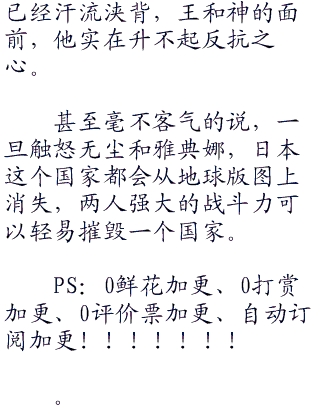 已经汗流浃背，王和神的面
前，他实在升不起反抗之
心。
甚至毫不客气的说，一
旦触怒无尘和雅典娜，日本
这个国家都会从地球版图上
消失，两人强大的战斗力可
以轻易摧毁一个国家。
PS：0鲜花加更、0打赏
加更、0评价票加更、自动订
阅加更！！！！！！！
。